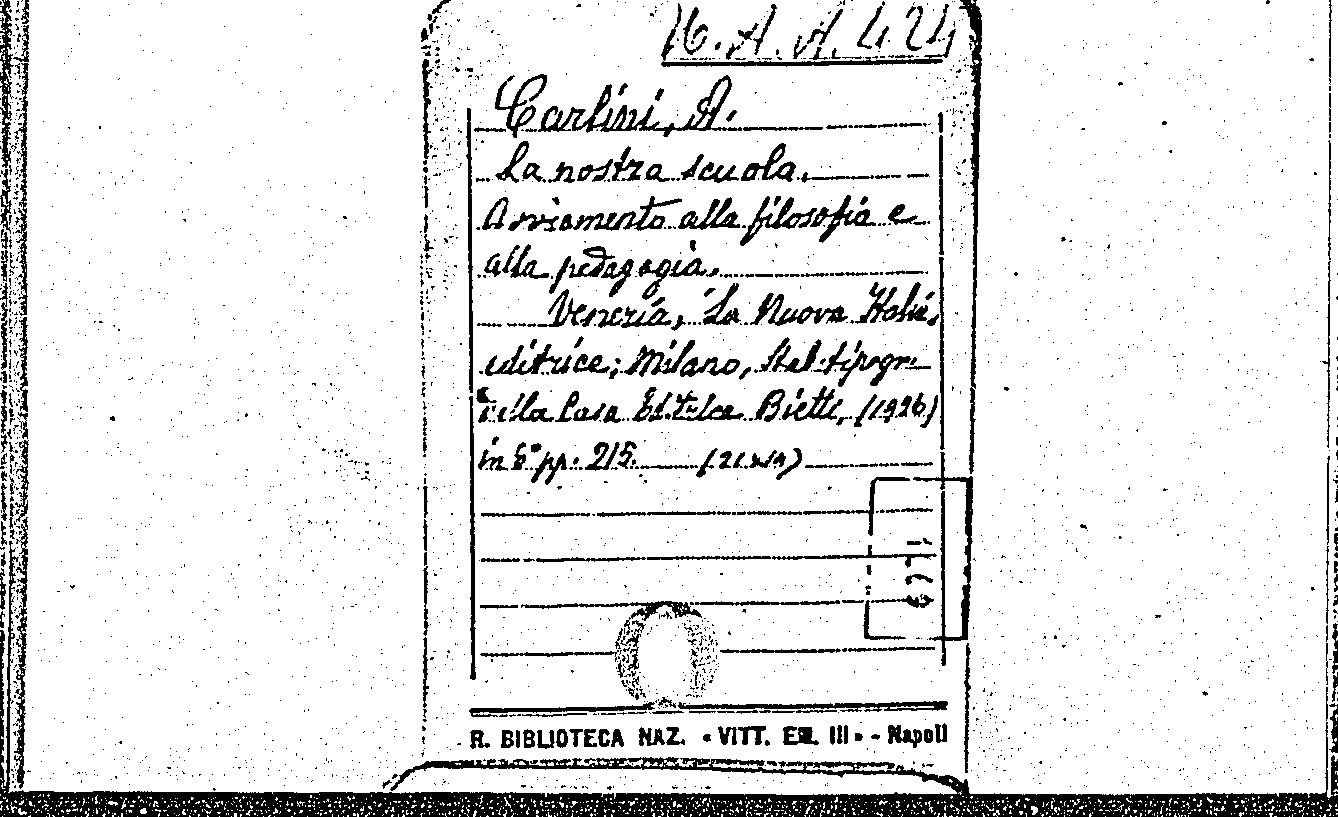 A. A. 424
Carlini, A.
La nostra scuola.
Avviamento alla filosofia e
alla pedagogia.
Venezia, La Nuova Italia,
editrice; Milano, Stab. tipogr.
della Casa Editrice Bietti, (1926)
in 8° pp. 215. (21x14)
R. BIBLIOTECA NAZ. «VITT. EM. III» - Napoli